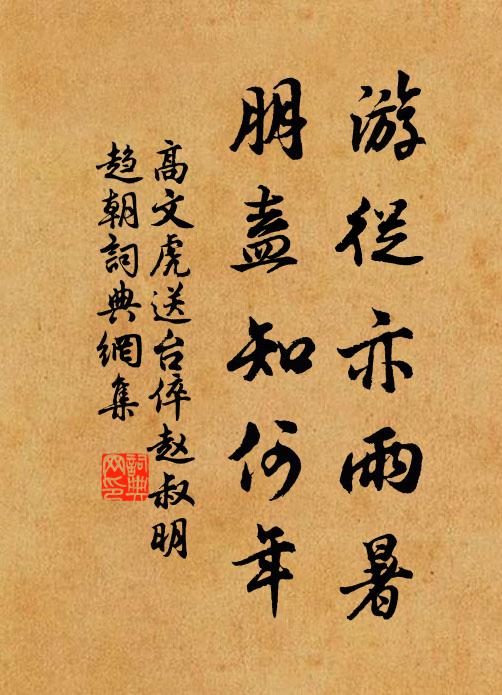 游従亦兩暑
朋盍知何年
高文虎送台倅赵叔明
趋朝詞典網集
詞典
网印